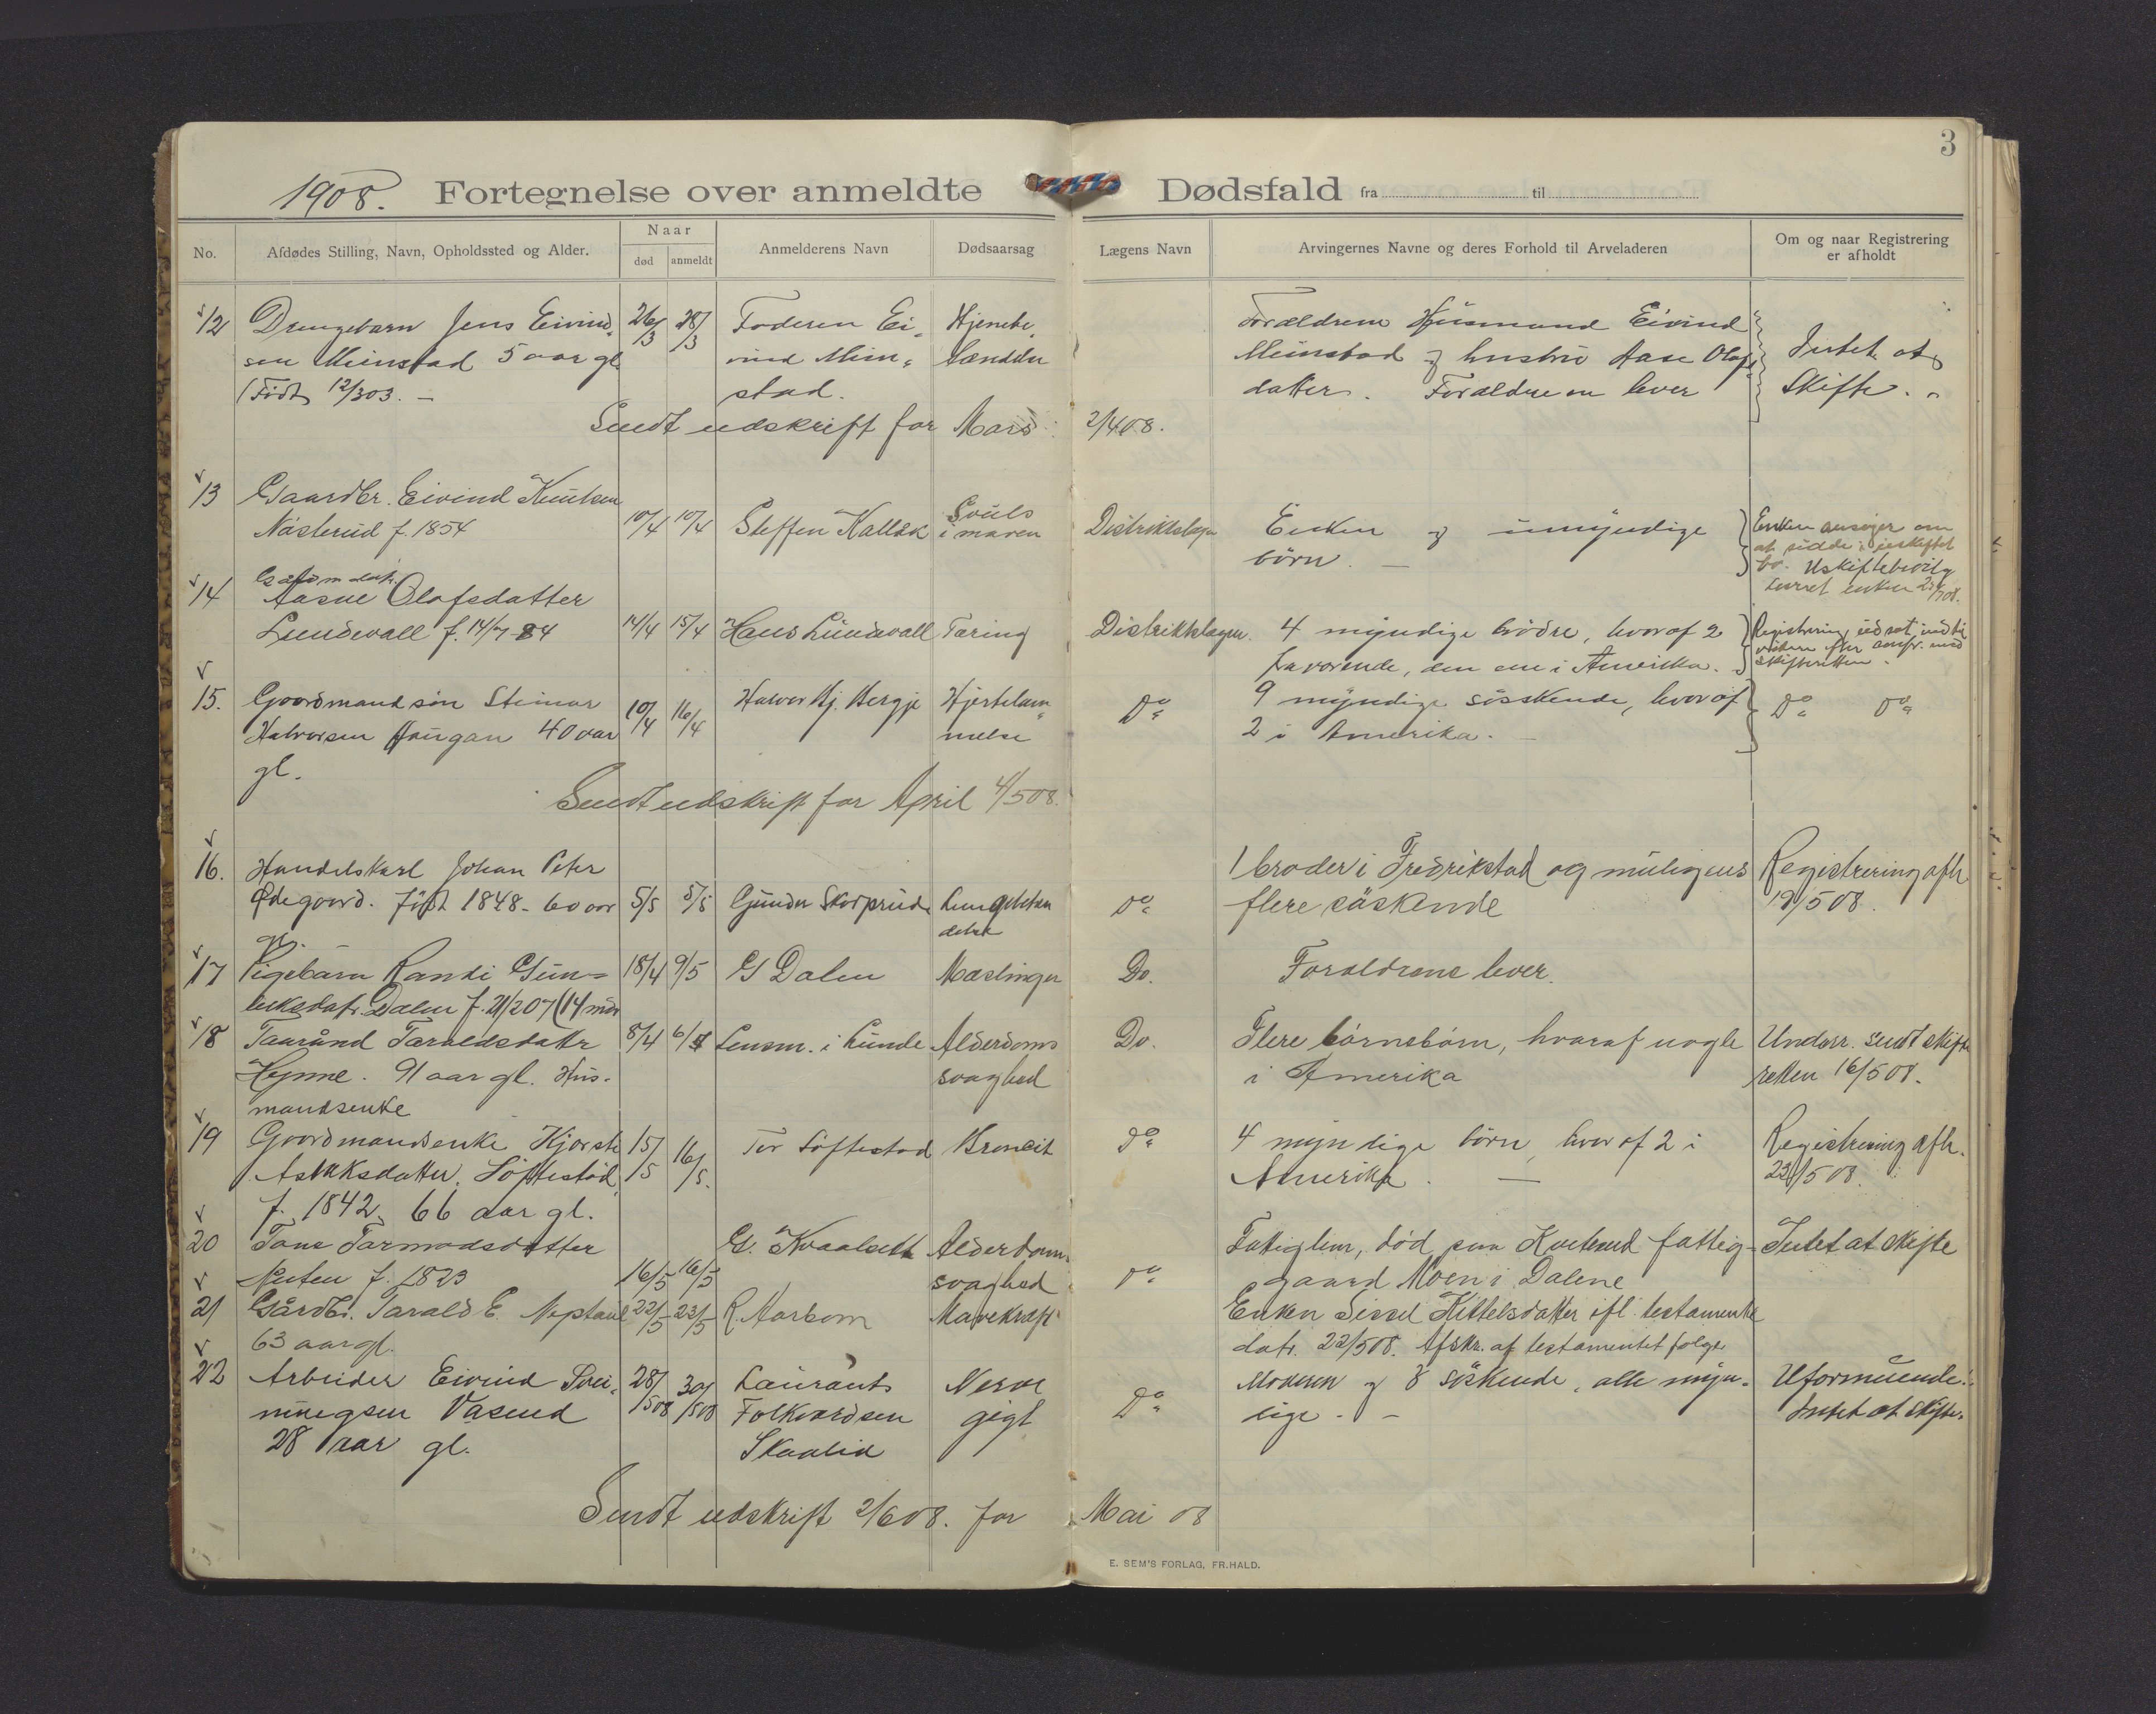 3
1908. Fortegnelse over anmeldte Dødsfald fra til
No. Afdødes Stilling, Navn, Opholdssted og Alder. Naar død anmeldt Anmelderens Navn Dødsaarsag Lægens Navn Arvingernes Navne og deres Forhold til Arveladeren Om og naar Registrering er afholdt
12 Drengebarn Jens Eivind- 26/3 28/3 Faderen Ei- Hjernebe- Forældrene Husmand Eivind
sen Meinstad 5 aar gl. vind Mein- tændelse Meinstad og hustru Aase Olafs- Intet at
(Født 12/3 03. – stad. datter. Forældrene lever Skifte.
Sendt udskrift for Mars 2/4 08.
13 Gaardbr. Eivind Knutsen
Nästerud f. 1854 10/4 10/4 Steffen Kallåk Svuls i maven Distriktslægen Enken og umyndige børn. – Enken ansøger om
at sidde i uskiftet
bo. Uskiftebevilg
14 Aasne Olafsdatter
Lundevall f. 14/7-84 14/4 15/4 Hans Lundevall Tæring Distriktslægen. 4 myndige brødre, hvoraf 2 Registrering udsat indtil
fraværende, den ene i Amerika. videre efter skifteretten.
15. Gaardmandsøn Steinar 10/4 16/4 Halvor Hj. Bergje Hjertelam- Do 9 myndige søskende, hvoraf Do Do
Halvorsen Haugan 40 aar melse 2 i Amerika. –
gl.
Sendt udskrift for April 4/5 08.
16. Handelskarl Johan Peter 1 broder i Fredrikstad og muligens Registrering afh.
Ødegaard. Født 1848 - 60 aar 5/5 5/5 Gunder Skorprud Lungebetæn Do flere söskende 19/5 08.
gl. delse
17 Pigebarn Randi Gun- 18/4 9/5 G Dalen Mæslinger Do. Forældrene lever.
leksdatr. Dalen f. 21/2 07 (14 mdr
18 Taarånd Taraldsdattr 8/4 6/5 Lensm. i Lunde Alderdoms Do. Flere börnebörn, hvoraf nogle Underr. sendt skifte
Hynne. 91 aar gl. Hus- svaghed i Amerika retten 16/5 08.
mandsenke
19 Gaardmandsenke Kjersti 15/5 16/5. Tor Löftestad Broncit Do 4 myndige börn, hvoraf 2 i Registrering afh.
Aslaksdatter. Löftestad Amerika. – 23/5 08.
f. 1842. 66 aar gl.
20 Tone Tarmodsdatter G. Kvaalseth Alderdoms Fattiglem, död paa fattig- Intet at skifte
Nuten f. 1823 16/5 16/5 svaghed Do gaard Moen i Dalene
21 Gårdbr. Tarald E. Neptaul 22/5 23/5 R. Aarbom Mavekræft Enken Sissel Kittelsdatter ifl. testamente
63 aar gl. datr. 22/5 08. Afskr. af testamentet følge
22 Arbeider Eivind 28/5 08 30/5 08 Laurants Nerve Do Moderen og 8 söskende, alle myn- Uformuende.
Vasend Folkvardsen gigt dige. – Intet at skifte.
28 aar gl. Skaalid
Sendt udskrift 2/6 08. for Mai 08
E. SEM'S FORLAG, FR.HALD.